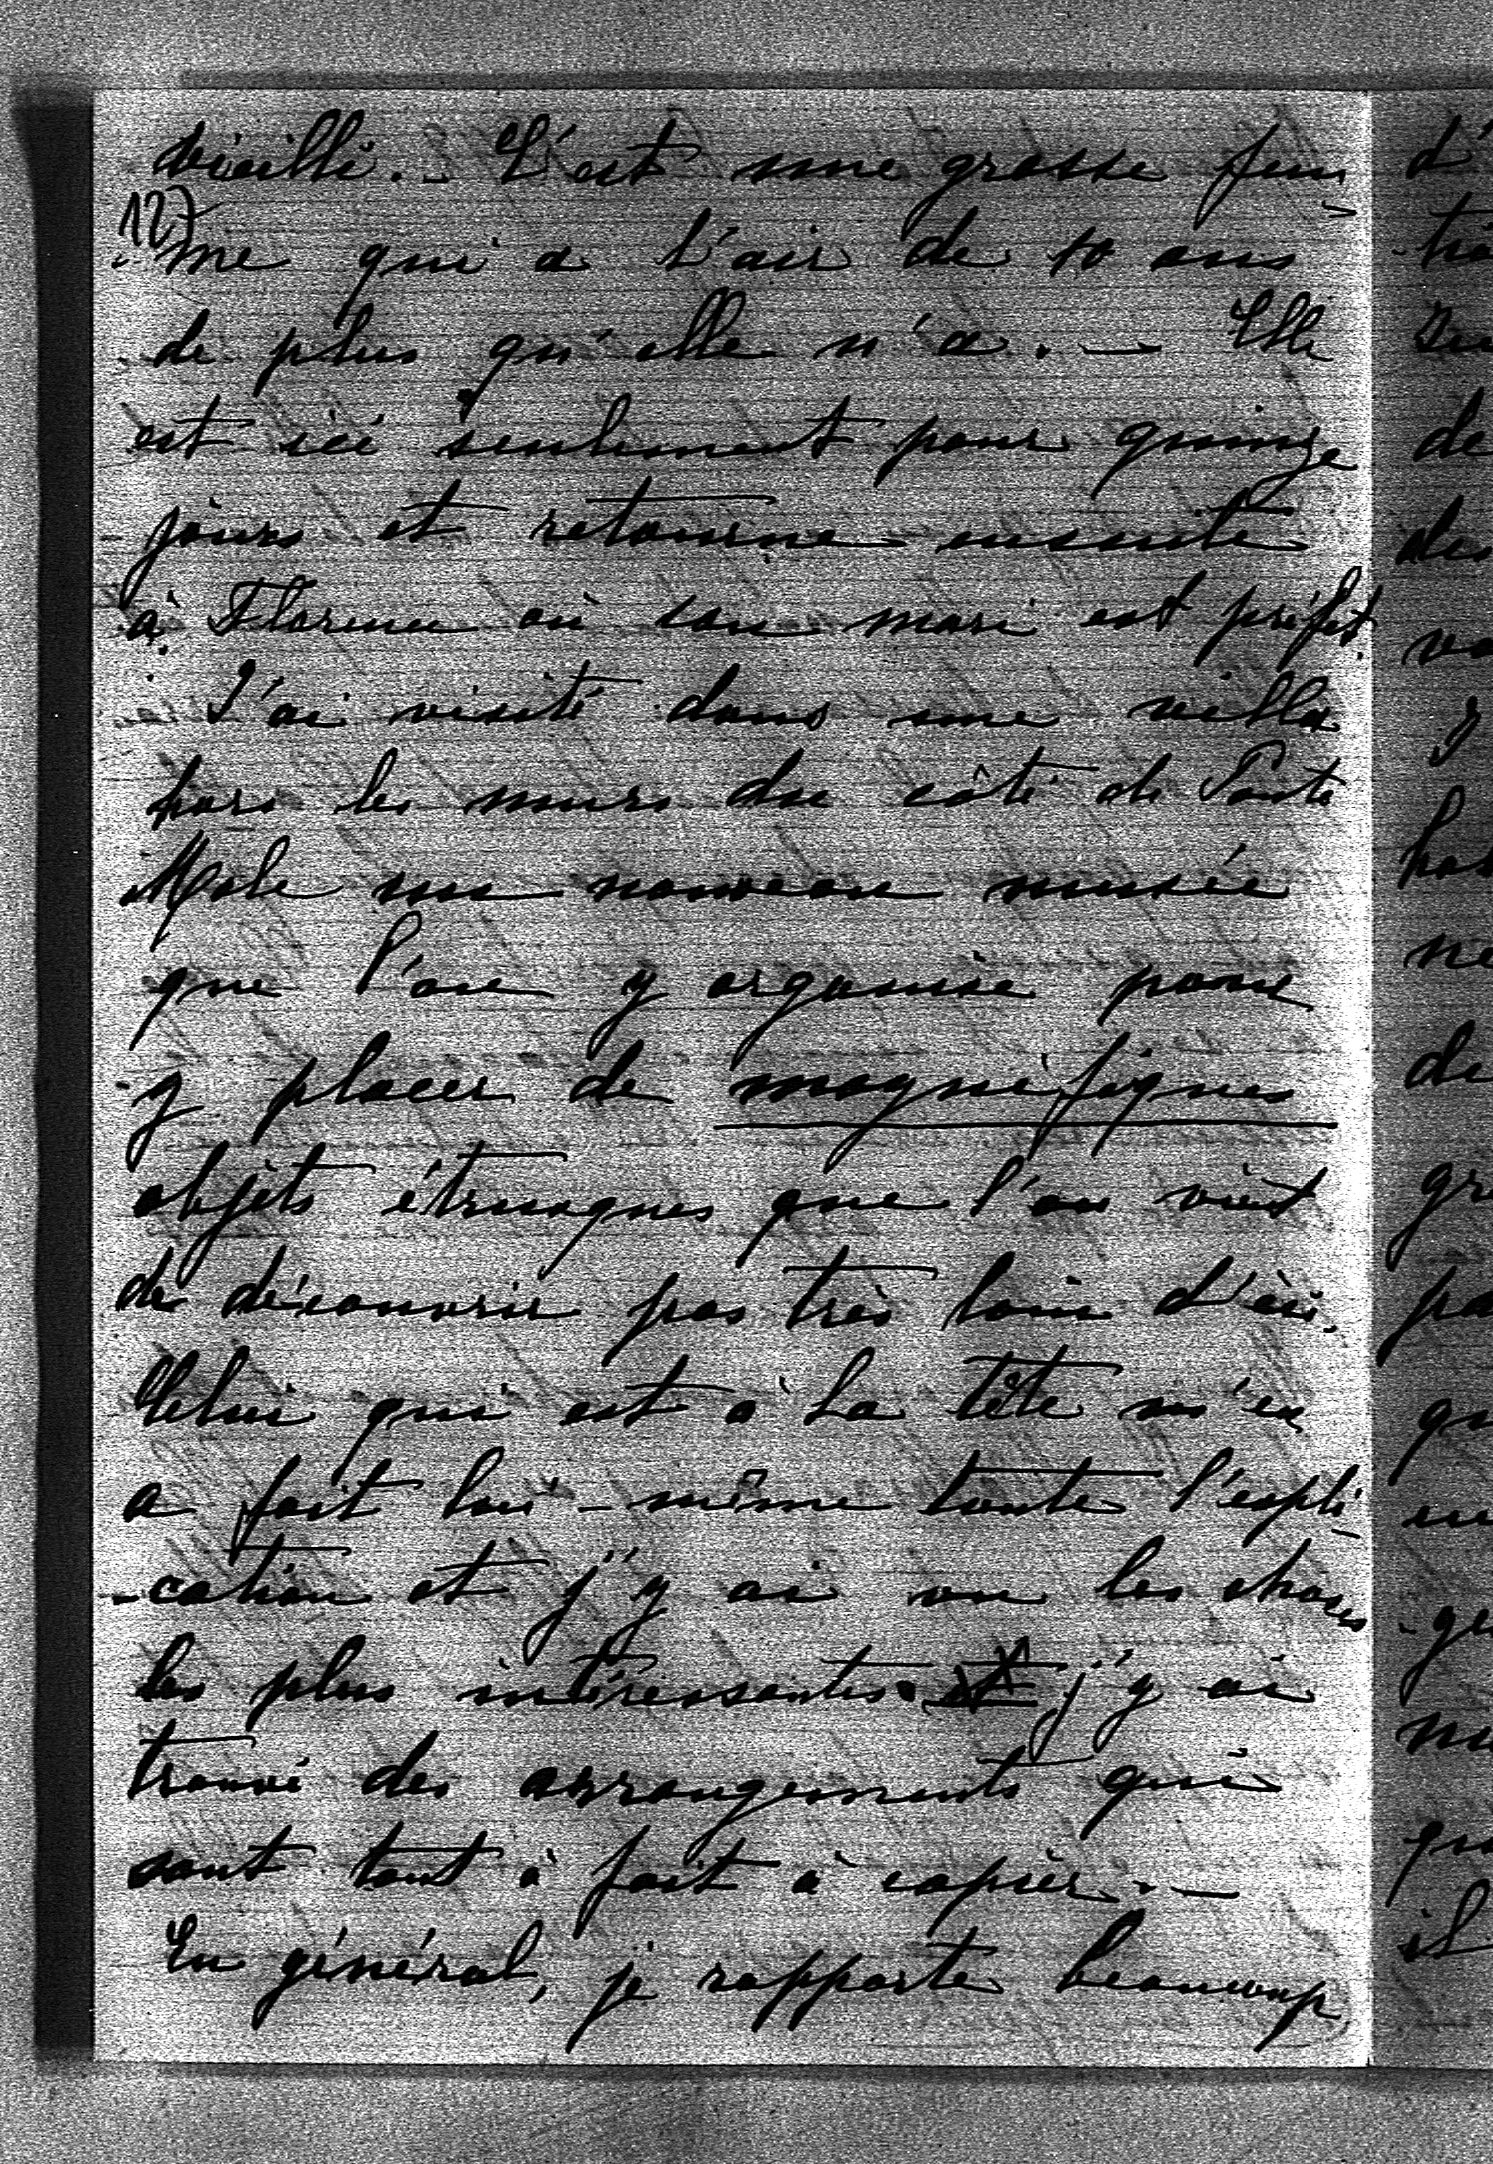 vieilli. – C'est une grosse fem-
127
-me qui a l'air de 10 ans
de plus qu'elle n'a. – Elle
est ici seulement pour quinze
jours et retourne ensuite
à Florence où son mari est préfet.
J'ai visité dans une villa
hors les murs du côté de Ponte
Mole un nouveau musée
que l'on y organise pour
y placer de magnifiques
objets étrusques que l'on vient
de découvrir pas très loin d'ici.
Celui qui est à la tête m'en
a fait lui-même toute l'expli-
-cation et j'y ai vu les choses
les plus intéressantes. et j'y ai
trouvé des arrangements qui
sont tout à fait à copier. –
En général, je rapporte beaucoup